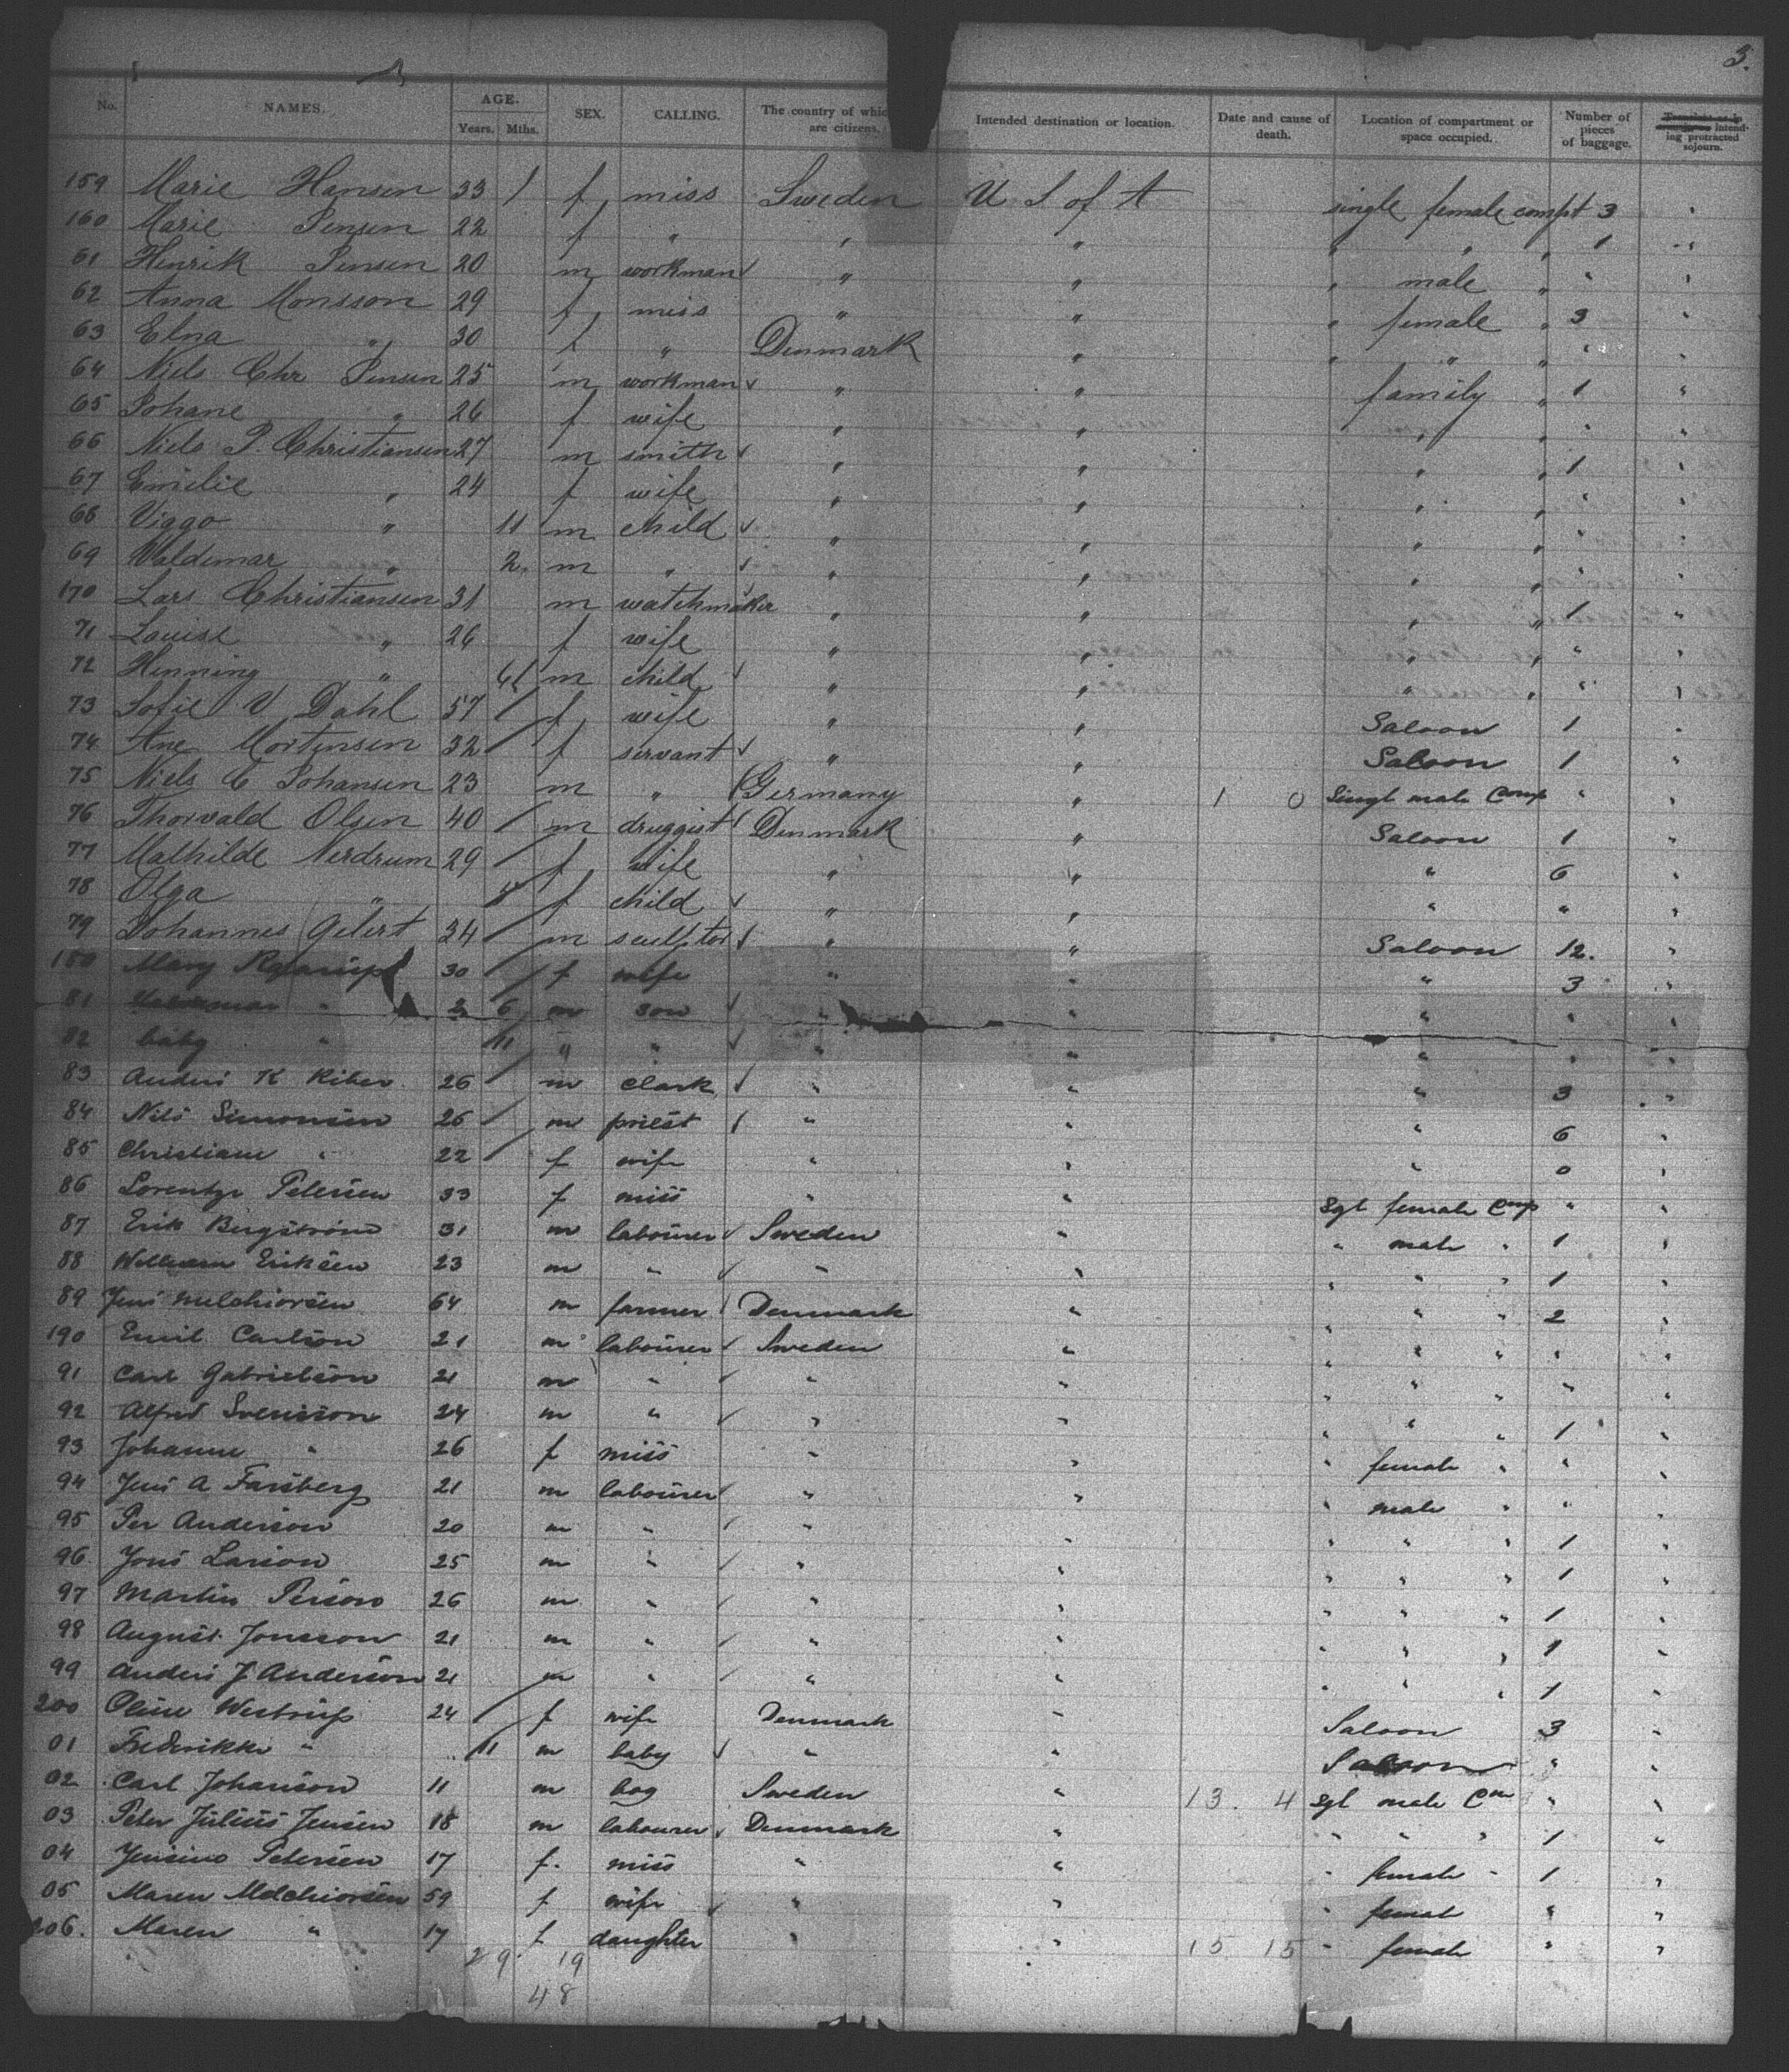 3.
No. NAMES. AGE. Years. Mths. SEX. CALLING. The country of which are citizens. Intended destination or location. Date and cause of death. Location of compartment or space occupied. Number of pieces of baggage. intending protracted sojourn.
159 Marie Hansen 33 f miss Sweden U S of A single female compt 3
160 Marie Jensen 22 f " " " " " " 1
61 Henrik Jensen 20 m workman " " " male " "
62 Anna Monsson 29 f miss " " " female " 3
63 Elna " 30 f " Denmark " " " " "
64 Niels Chr Jensen 25 m workman " " family " 1
65 Johane " 26 f wife " " " " "
66 Niels P. Christiansen 27 m smith " " " " 1
67 Emilie " 24 f wife " " " " "
68 Viggo " 11 m child " " " " "
69 Waldemar " 2 m " " " " " "
170 Lars Christiansen 31 m watchmaker " " " " 1 "
71 Louise " 26 f wife " " " " "
72 Henning " m child " " " " "
73 Sofie V Dahl 57 f wife " " Saloon 1
74 Ane Mortensen 32 f servant " " Saloon 1
75 Niels C Johansen 23 m " Germany " 1 0 Singl male Comp "
76 Thorvald Olsen 40 m druggist Denmark " Saloon 1
77 Mathilde Nerdrum 29 f wife " " " 6
78 Olga " f child " " " "
79 Johannes Gelert 34 m sculptor " " Saloon 12.
180 Mary 30 f wife " " " 3
81 " 2 6 m son " " " "
82 baby " 11 " " " " " "
83 Anders K Riber 26 m clark " " " 3
84 Nils Simonsen 26 m priest " " " 6
85 Christiane " 22 f wife " " " 0
86 Lorentze Petersen 33 f miss " " Sgl female Comp "
87 Erik Bergström 31 m labourer Sweden " " male " 1
88 William Eriksen 23 m " " " " " " 1
89 Jens Melchiorsen 64 m farmer Denmark " " " " 2
190 Emil Carlson 21 m labourer Sweden " " " " "
91 Carl Gabrielson 21 m " " " " " " "
92 Alfred Svensson 24 m " " " " " " 1
93 Johanne " 26 f miss " " " female " "
94 Jens A Farsberg 21 m labourer " " " male " "
95 Per Anderson 20 m " " " " " " 1
96 Jons Larson 25 m " " " " " " 1
97 Martin Person 26 m " " " " " " 1
98 August Jonsson 21 m " " " " " " 1
99 Anders J Anderson 21 m " " " " " " 1
200 Oline Westrup 24 f wife Denmark " Saloon 3
01 Frederikke " 11 m baby " " Saloon "
02 Carl Johanson 11 m boy Sweden " 13. 4 Sgl male Com "
03 Peter Julius Jensen 18 m labourer Denmark " " " " 1
04 Jensine Petersen 17 f. miss " " " female " 1
05 Maren Melchiorsen 59 f wife " " " female "
206. Maren " 17 f daughter " " 15 15 " female "
29. 19
48